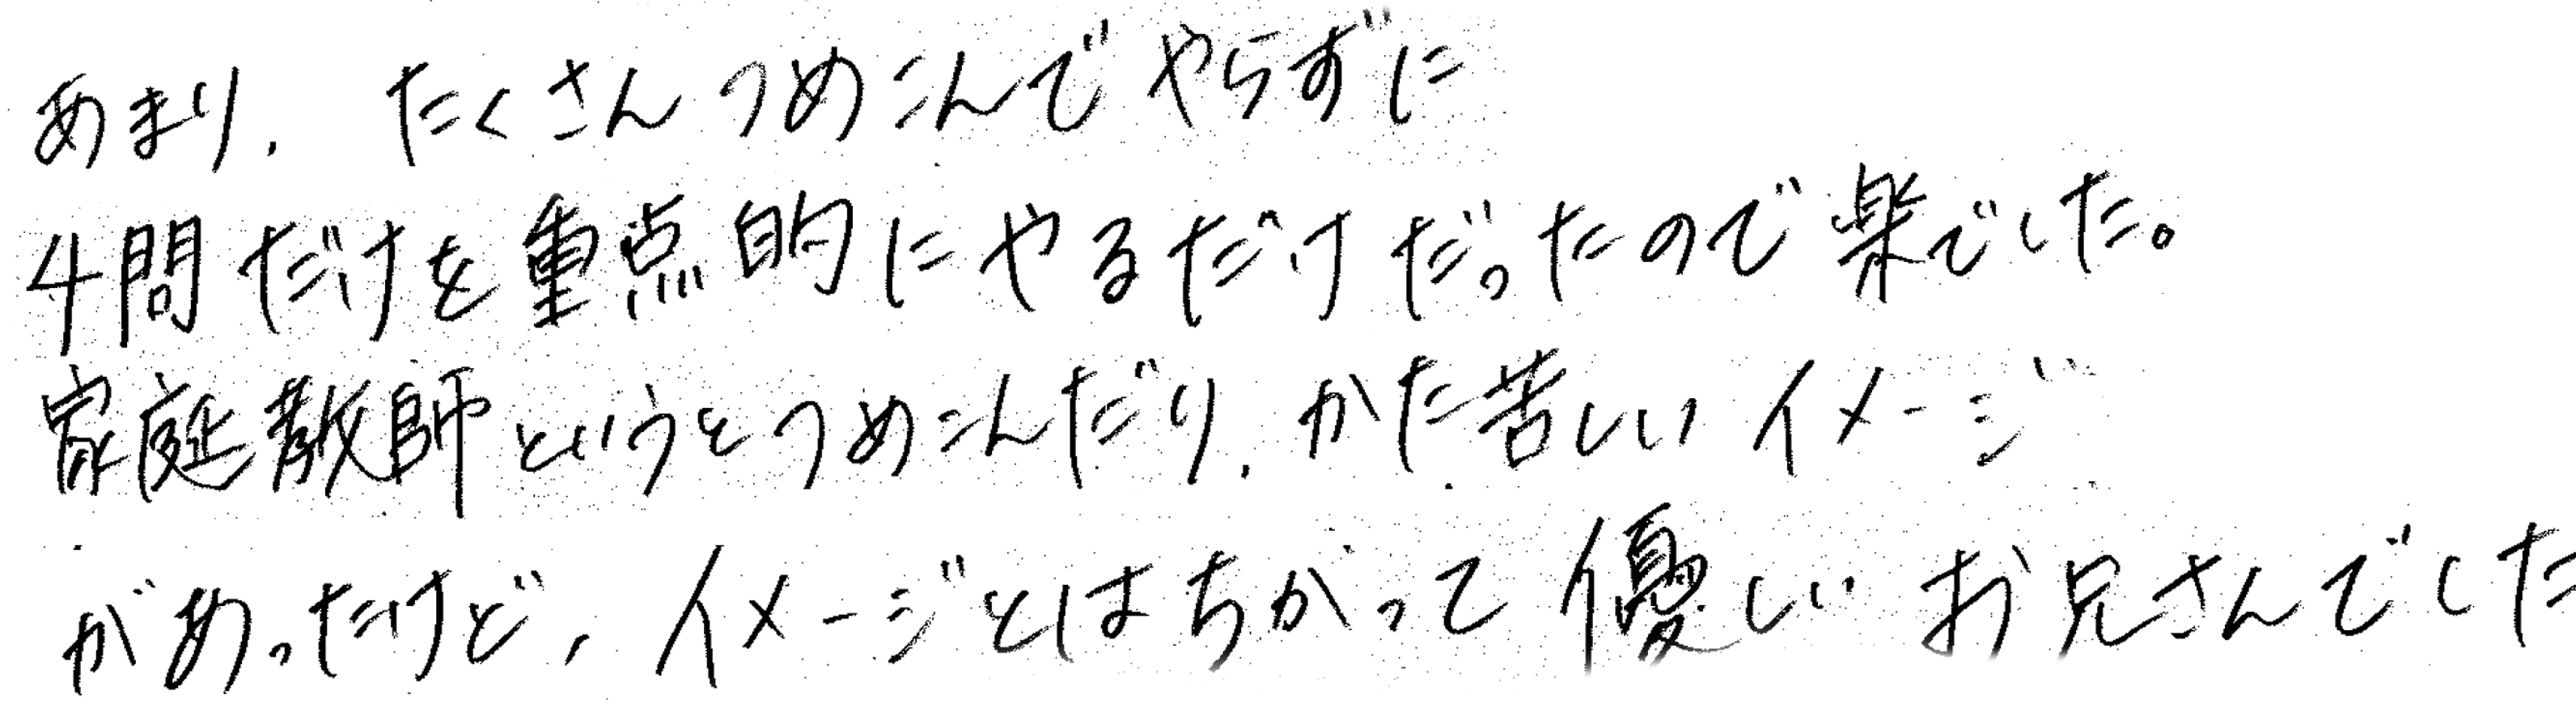 あまり、たくさんつめこんでやらずに
4問だけを重点的にやるだけだったので楽でした。
家庭教師というとつめこんだり、かた苦しいイメージ
があったけど、イメージとはちがって優しいお兄さんでした